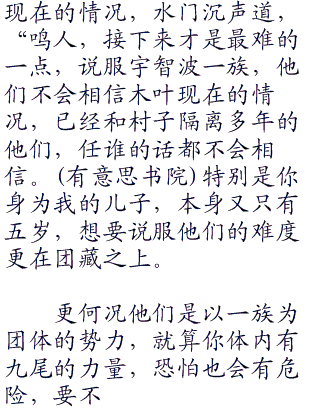 现在的情况，水门沉声道，
“鸣人，接下来才是最难的
一点，说服宇智波一族，他
们不会相信木叶现在的情
况，已经和村子隔离多年的
他们，任谁的话都不会相
信。(有意思书院)特别是你
身为我的儿子，本身又只有
五岁，想要说服他们的难度
更在团藏之上。
更何况他们是以一族为
团体的势力，就算你体内有
九尾的力量，恐怕也会有危
险，要不